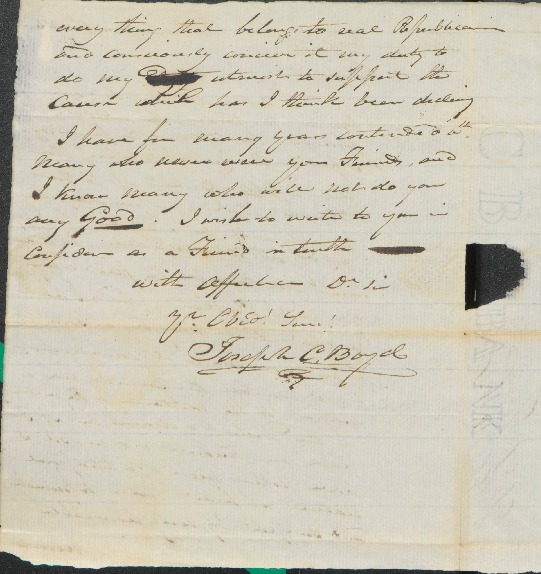 every thing that belongs to real Republican
and conscously conceive it my duty to
do my utmost to support the
Cause which has I think been
I have for many years contended wth
many who never were your Friends, and
I know many who will not do you
any Good. I wish to write to you in
Confidence as a Friend in truth
with affection Dr Sir
Yr Obed Ser
Joseph C. Boyd
C B
BANK